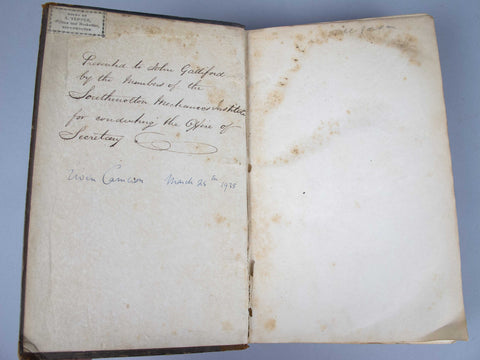 Presented to John Galliford
by the Members of the
Southmolton Mechanics Institute
for conducting the Office of
Secretary
March 25th 1935